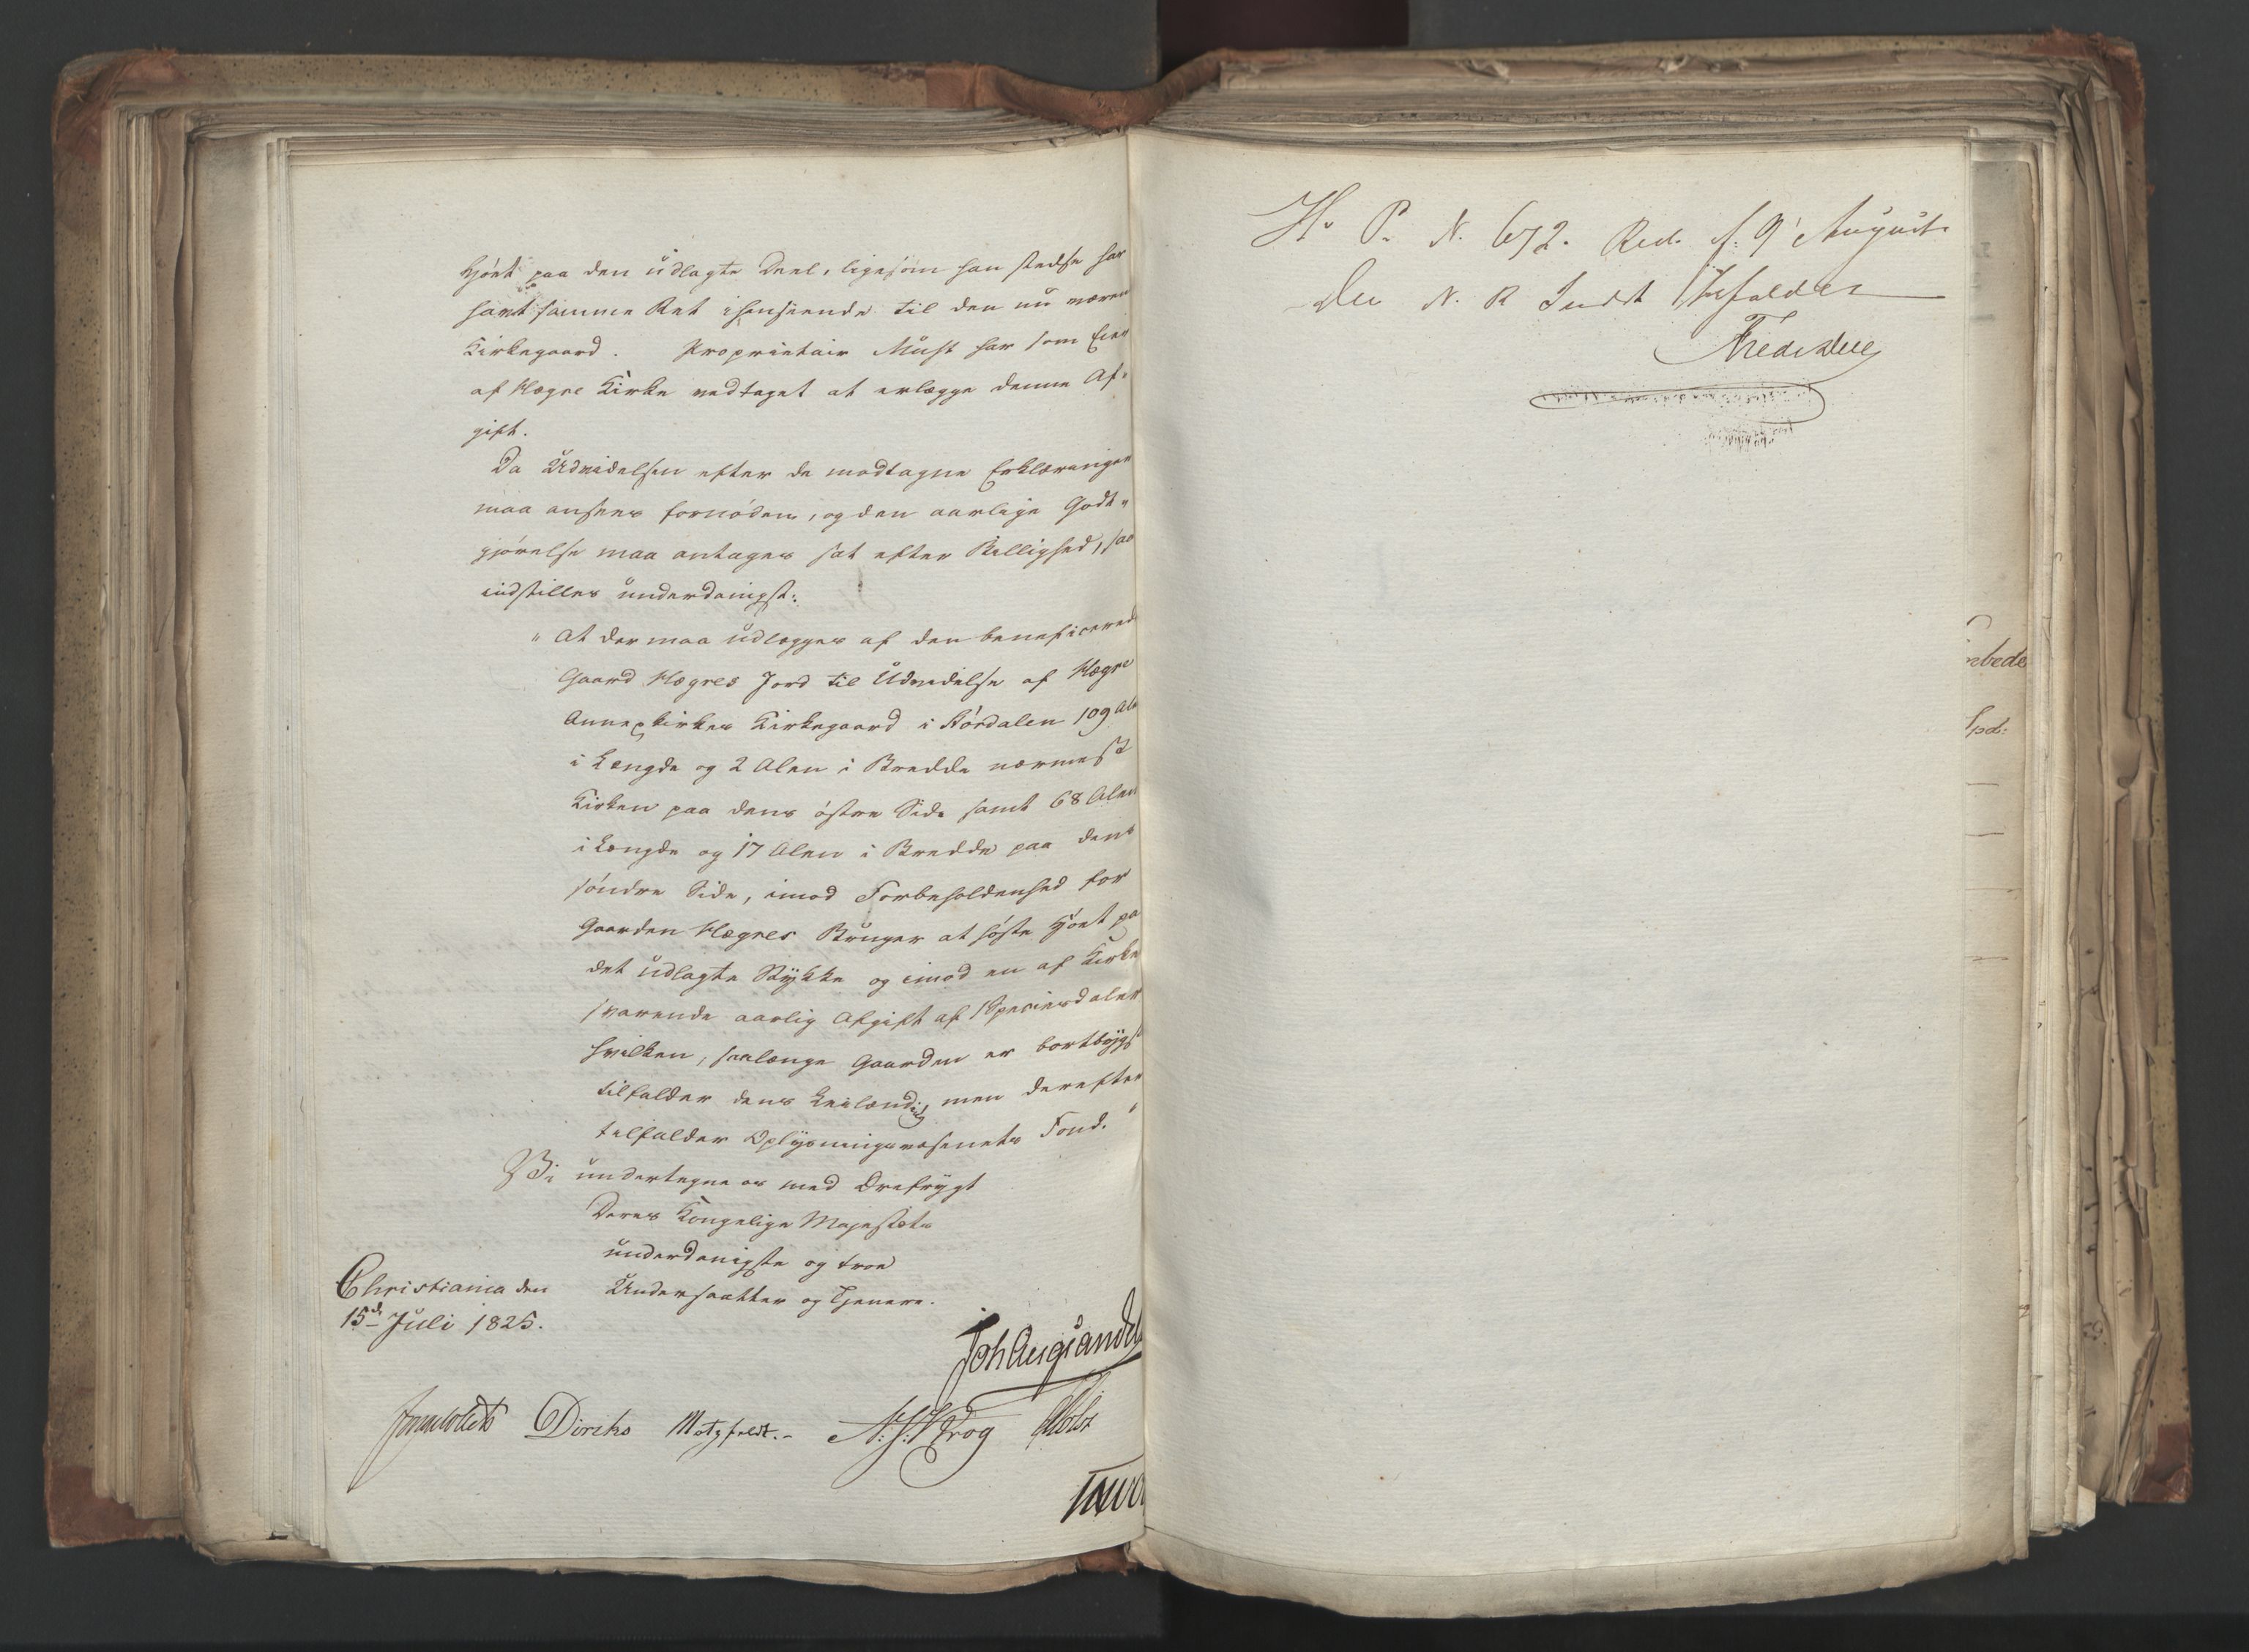 Høet paa den udlagte Deel, ligesom han stedse har
havt samme Ret ihenseende til den nu værende
Kirkegaard. Proprietair Must har som Eier
af Hegre Kirke vedtaget at erlægge denne Af-
gift.
Da Udvidelsen efter de modtagne Erklæringer
maa ansees fornøden, og den aarlige Godt-
gjørelse maa antages sat efter Billighed, saa
indstilles underdanigst:
"At der maa udlægges af den beneficerede
Gaard Hegres Jord til Udvidelse af Hegre
Annexkirkes Kirkegaard i Størdalen 109 Alen
i Længde og 2 Alen i Bredde nærmest
Kirken paa dens østre Side samt 68 Alen
i Længde og 17 Alen i Bredde paa dens
søndre Side, imod Forbeholdenhed for
Gaarden Hegres Bruger at høste Høet paa
det udlagte Stykke og imod en af Kirken
svarende aarlig Afgift af 1 Speciesdaler
hvilken, saalænge Gaarden er bortbygs
tilfalder dens Leilænding, men derefter
tilfalder Oplysningsvæsenets Fond."
Vi undertegne os med Ærefrygt
Deres Kongelige Majestæts
underdanigste og troe
Christiania den Undersaatter og Tjenere.
15de Juli 1825.
Joh Aug Sandels
Sommerhielm Diriks Motzfeldt.- N: J: Krog
H. P. N. 672. Red. f: 9' August
Den N. R Indst bifaldes